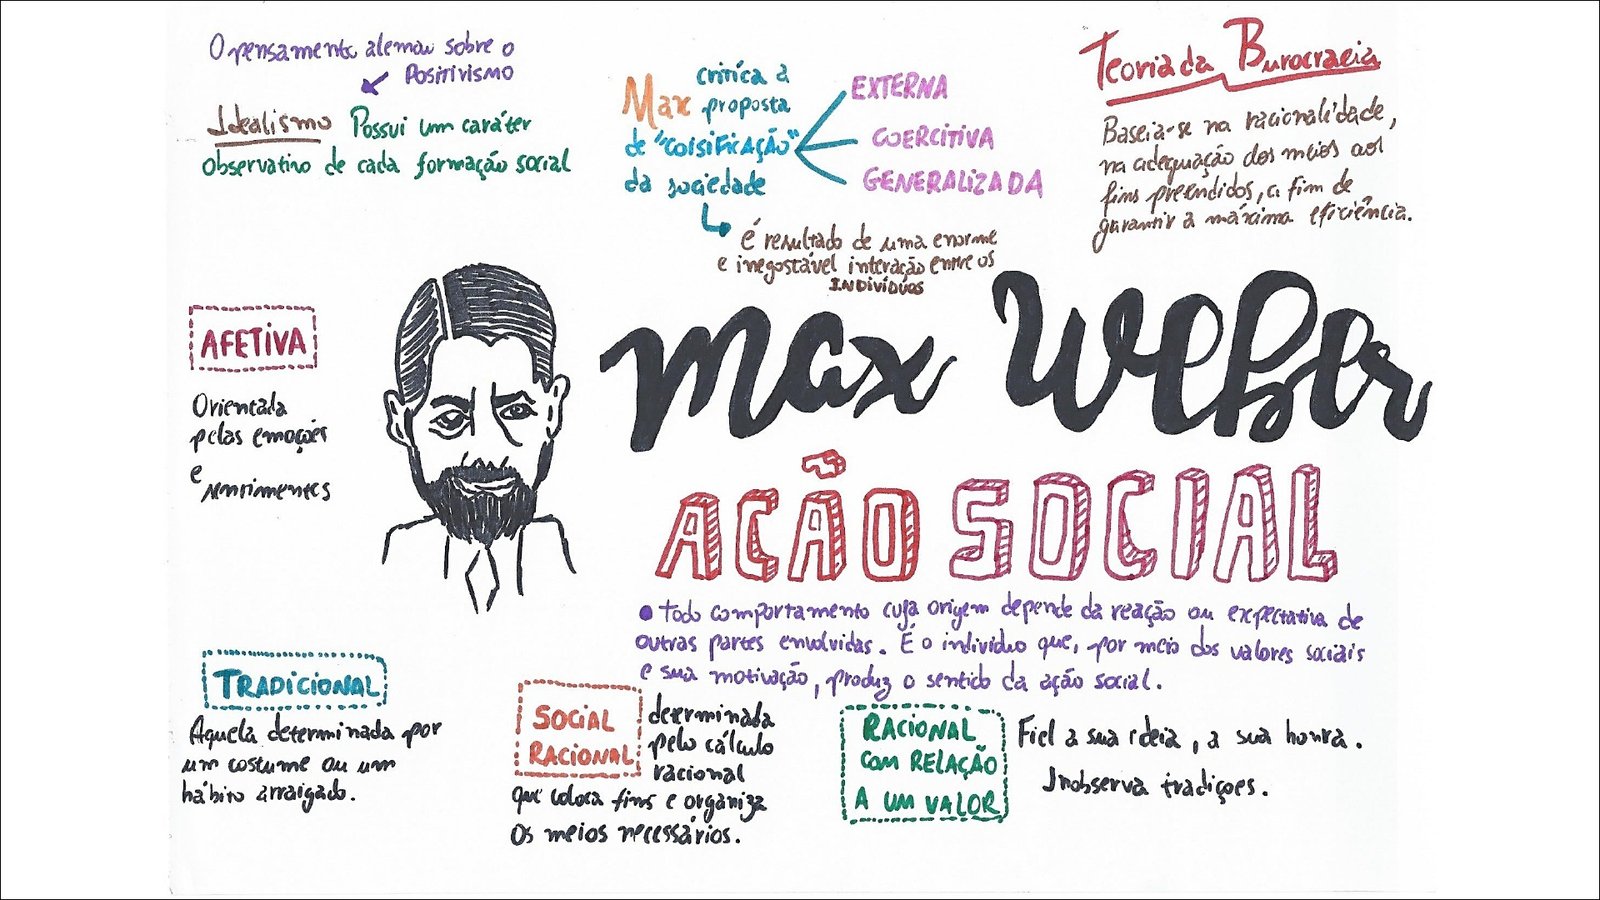 O pensamento alemão sobre o
Positivismo
Idealismo Possui um caráter
observativo de cada formação social
Max critica a
proposta
de "coisificação"
da sociedade
EXTERNA
COERCITIVA
GENERALIZADA
é resultado de uma enorme
e inegostável interação entre os
INDIVÍDUOS
Teoria da Burocracia
Baseia-se na racionalidade,
na adequação dos meios aos
fins preendidos, a fim de
garantir a máxima eficiência.
Max Weber
AÇÃO SOCIAL
• todo comportamento cuja origem depende da reação ou expectativa de
outras partes envolvidas. É o indivíduo que, por meio dos valores sociais
e sua motivação, produz o sentido da ação social.
AFETIVA
Orientada
pelas emoções
e sentimentos
TRADICIONAL
Aquela determinada por
um costume ou um
hábito arraigado.
SOCIAL
RACIONAL
determinada
pelo cálculo
racional
que coloca fins e organiza
os meios necessários.
RACIONAL
COM RELAÇÃO
A UM VALOR
Fiel a sua ideia, a sua honra.
Inobserva tradiçoes.